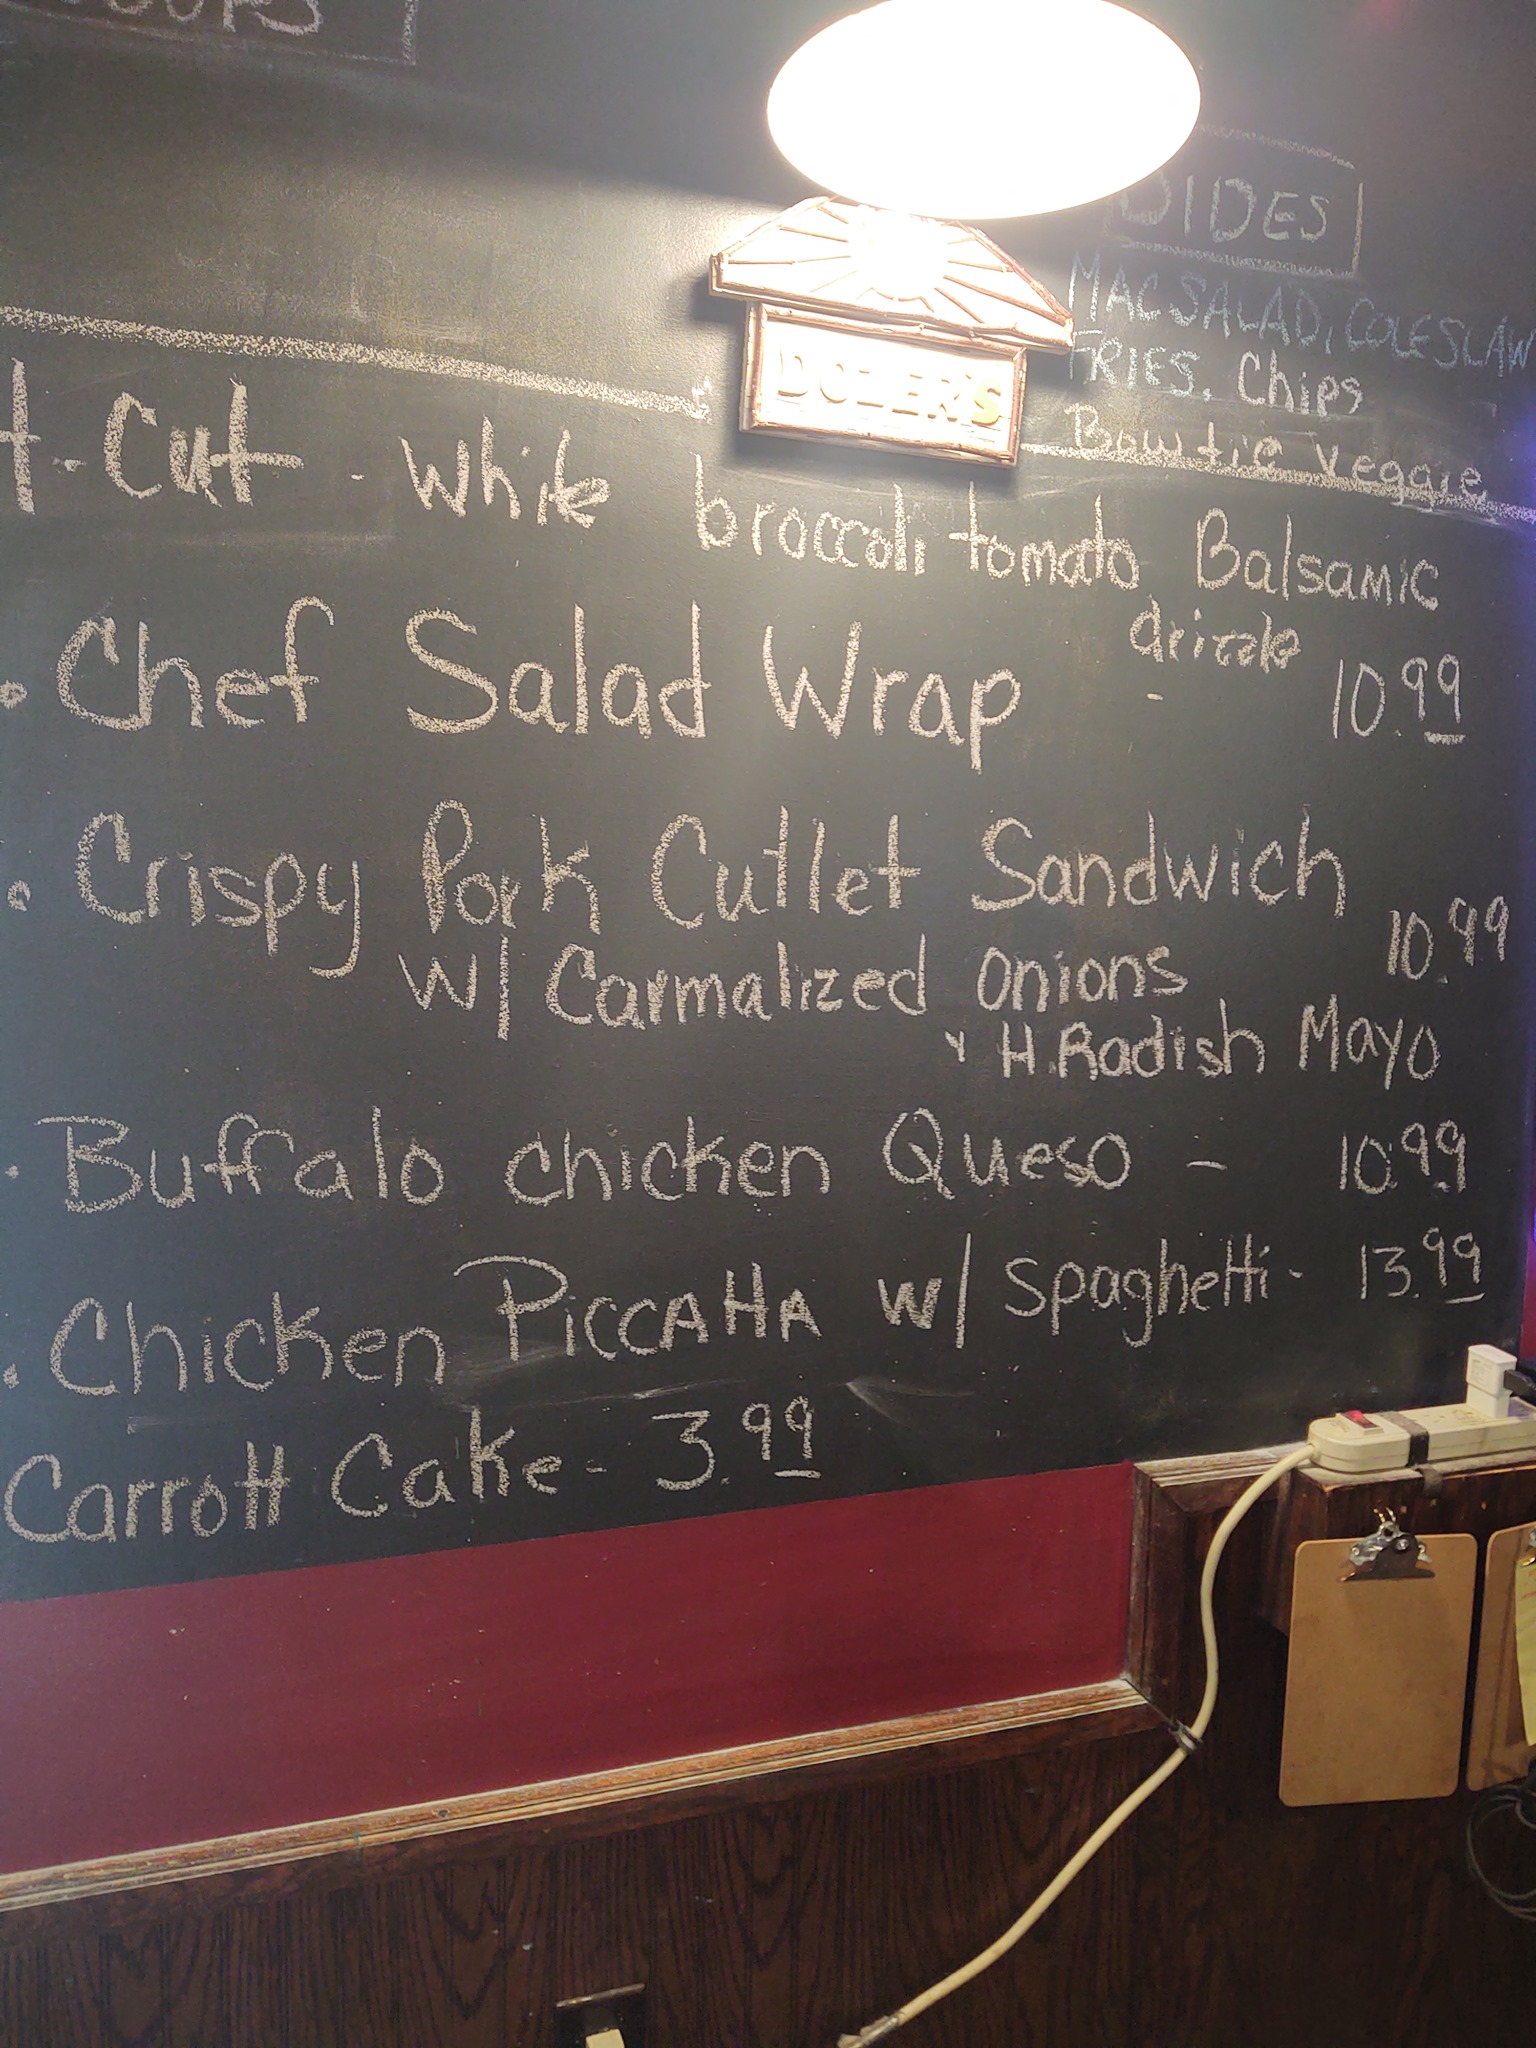 SIDES
MAC SALAD, COLESLAW
FRIES, Chips
Bowtie Veggie
DOZER'S
t-Cut - White broccoli tomato Balsamic
drizzle
. Chef Salad Wrap - 10.99
. Crispy Pork Cutlet Sandwich
w/ Carmalized onions 10.99
H.Radish Mayo
. Buffalo chicken Queso - 10.99
. Chicken PiccAttA w/ spaghetti - 13.99
Carrott Cake - 3.99